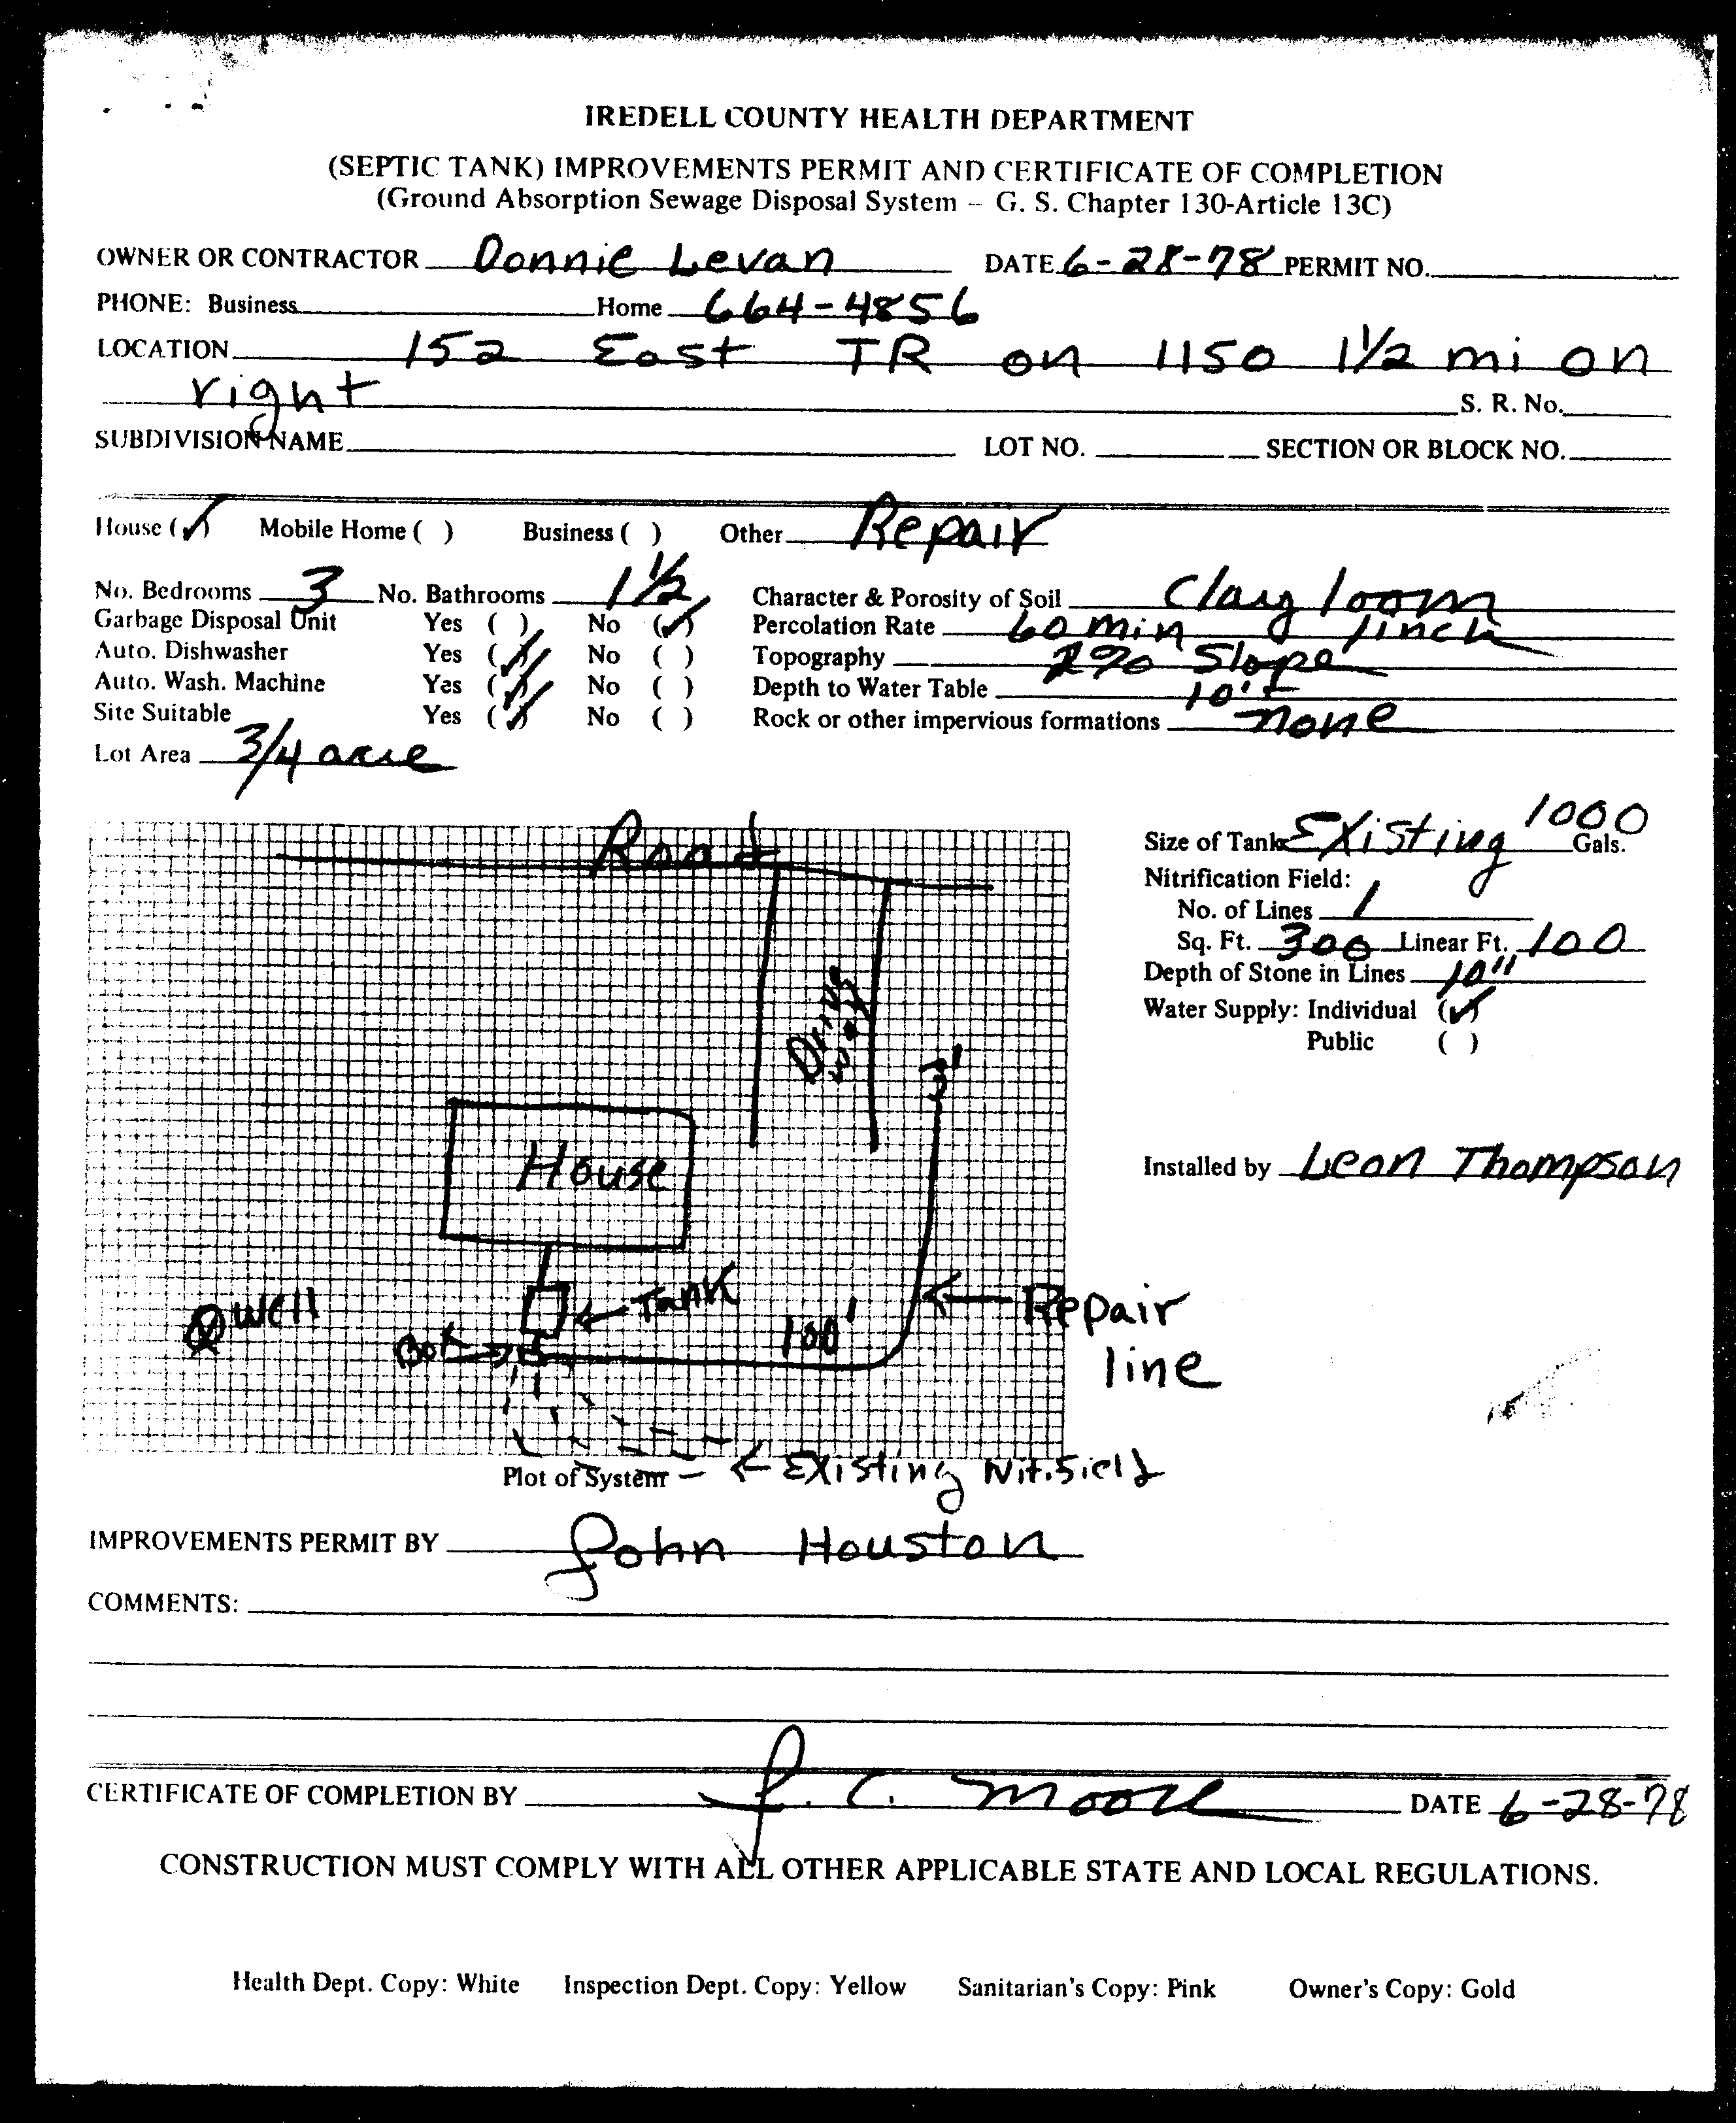 IREDELL COUNTY HEALTH DEPARTMENT
(SEPTIC TANK) IMPROVEMENTS PERMIT AND CERTIFICATE OF COMPLETION
(Ground Absorption Sewage Disposal System – G. S. Chapter 130-Article 13C)
OWNER OR CONTRACTOR Donnie Levan DATE 6-28-78 PERMIT NO.
PHONE: Business Home 664-4856
LOCATION 152 East TR on 1150 1½ mi on
right S. R. No.
SUBDIVISION NAME LOT NO. SECTION OR BLOCK NO.
House (✓) Mobile Home ( ) Business ( ) Other Repair
No. Bedrooms 3 No. Bathrooms 1 ½ Character & Porosity of Soil Clay loom
Garbage Disposal Unit Yes ( ) No (✓) Percolation Rate 60 min 1inch
Auto. Dishwasher Yes (✓) No ( ) Topography 2% Slope
Auto. Wash. Machine Yes (✓) No ( ) Depth to Water Table 10'+
Site Suitable Yes (✓) No ( ) Rock or other impervious formations none
Lot Area 3/4 acre
Road
Size of Tank Existing 1000 Gals.
Nitrification Field:
No. of Lines 1
Sq. Ft. 300 Linear Ft. 100
Depth of Stone in Lines 10"
Water Supply: Individual (✓)
Public ( )
Drive
way
3'
House
Installed by Leon Thompson
Well
Tank
Repair
line
Box
100'
Plot of System
Existing Nit. Field
IMPROVEMENTS PERMIT BY John Houston
COMMENTS:
CERTIFICATE OF COMPLETION BY J. C. Moore DATE 6-28-78
CONSTRUCTION MUST COMPLY WITH ALL OTHER APPLICABLE STATE AND LOCAL REGULATIONS.
Health Dept. Copy: White Inspection Dept. Copy: Yellow Sanitarian's Copy: Pink Owner's Copy: Gold